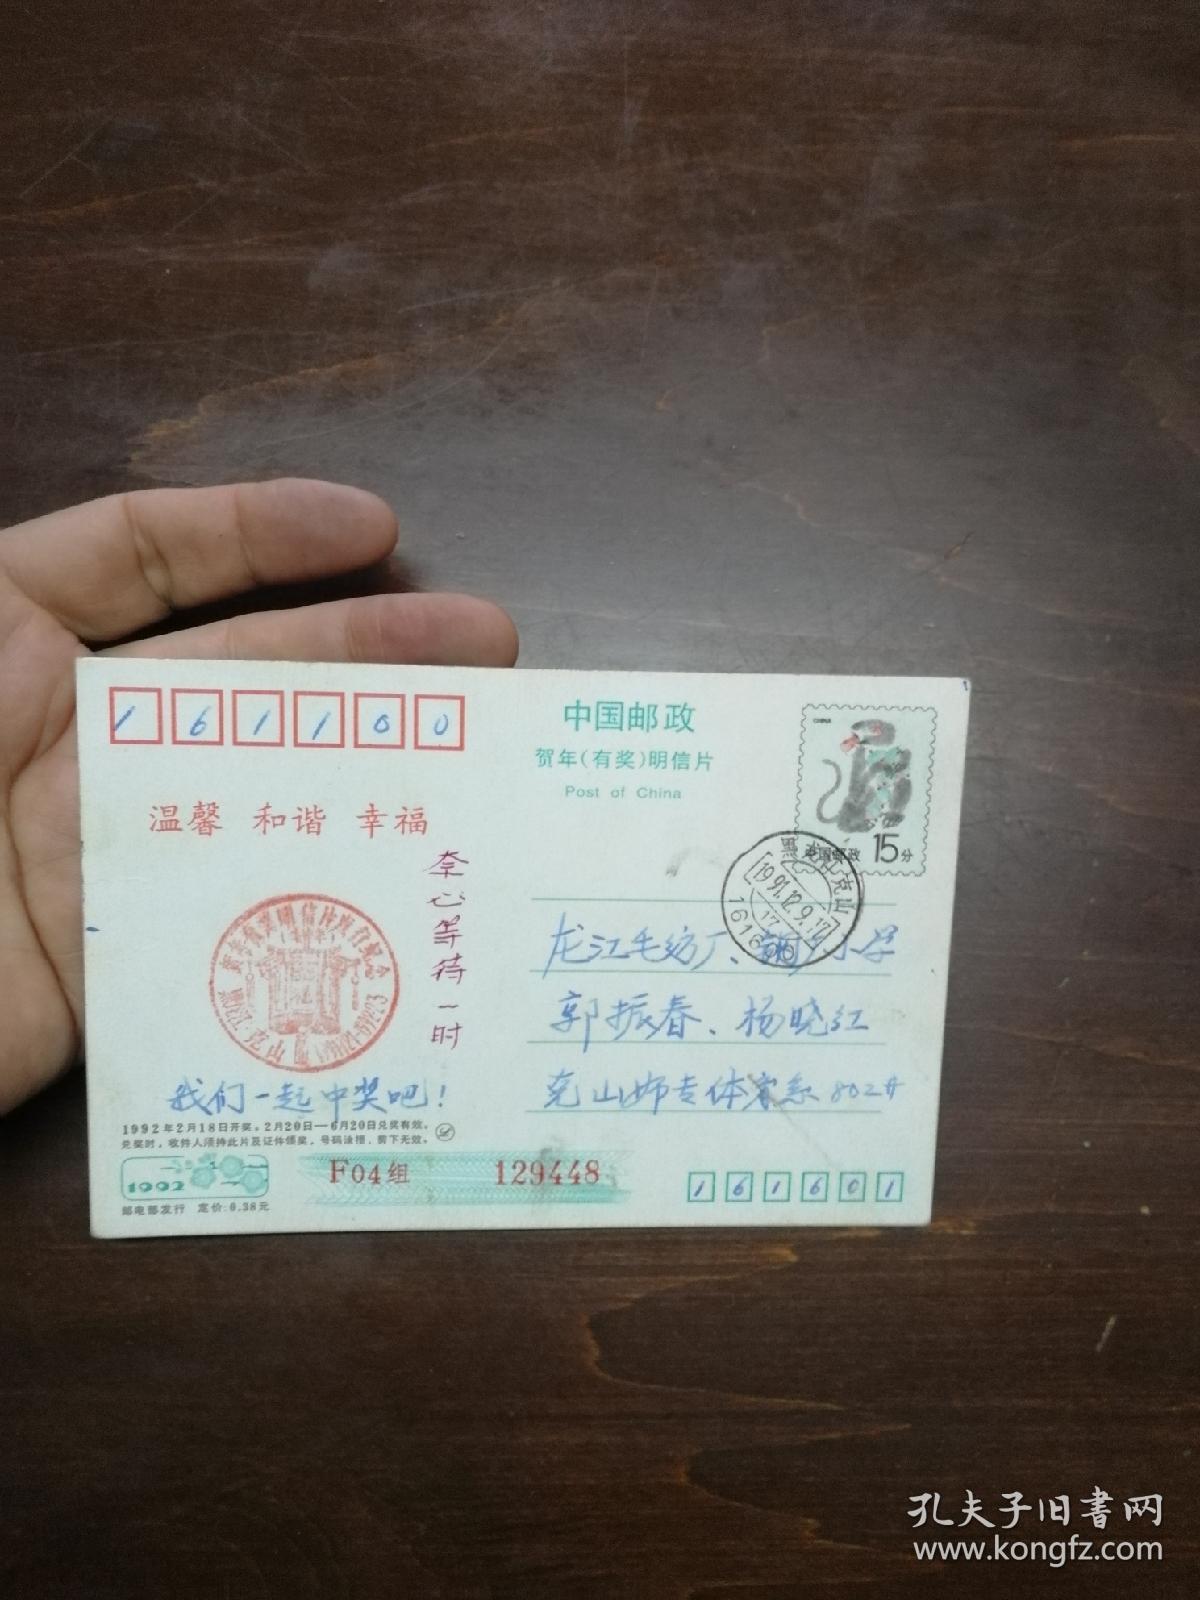 161100
中国邮政
贺年(有奖)明信片
Post of China
CHINA
中国邮政 15分
温馨 和谐 幸福
奈心等待一时
黑龙江克山
1991.12.9.17
龙江毛纺厂、
小学
郭振春、杨晓红
克山师专体
系802#
贺年有奖明信片发行纪念
黑龙江·克山
我们一起中奖吧!
1992年2月18日开奖。2月20日—6月20日兑奖有效。
兑奖时,收件人须持此片及证件领奖,号码涂损、剪下无效。
1992
F04组 129448
邮电部发行 定价:0.38元
161601
孔夫子旧书网
www.kongfz.com